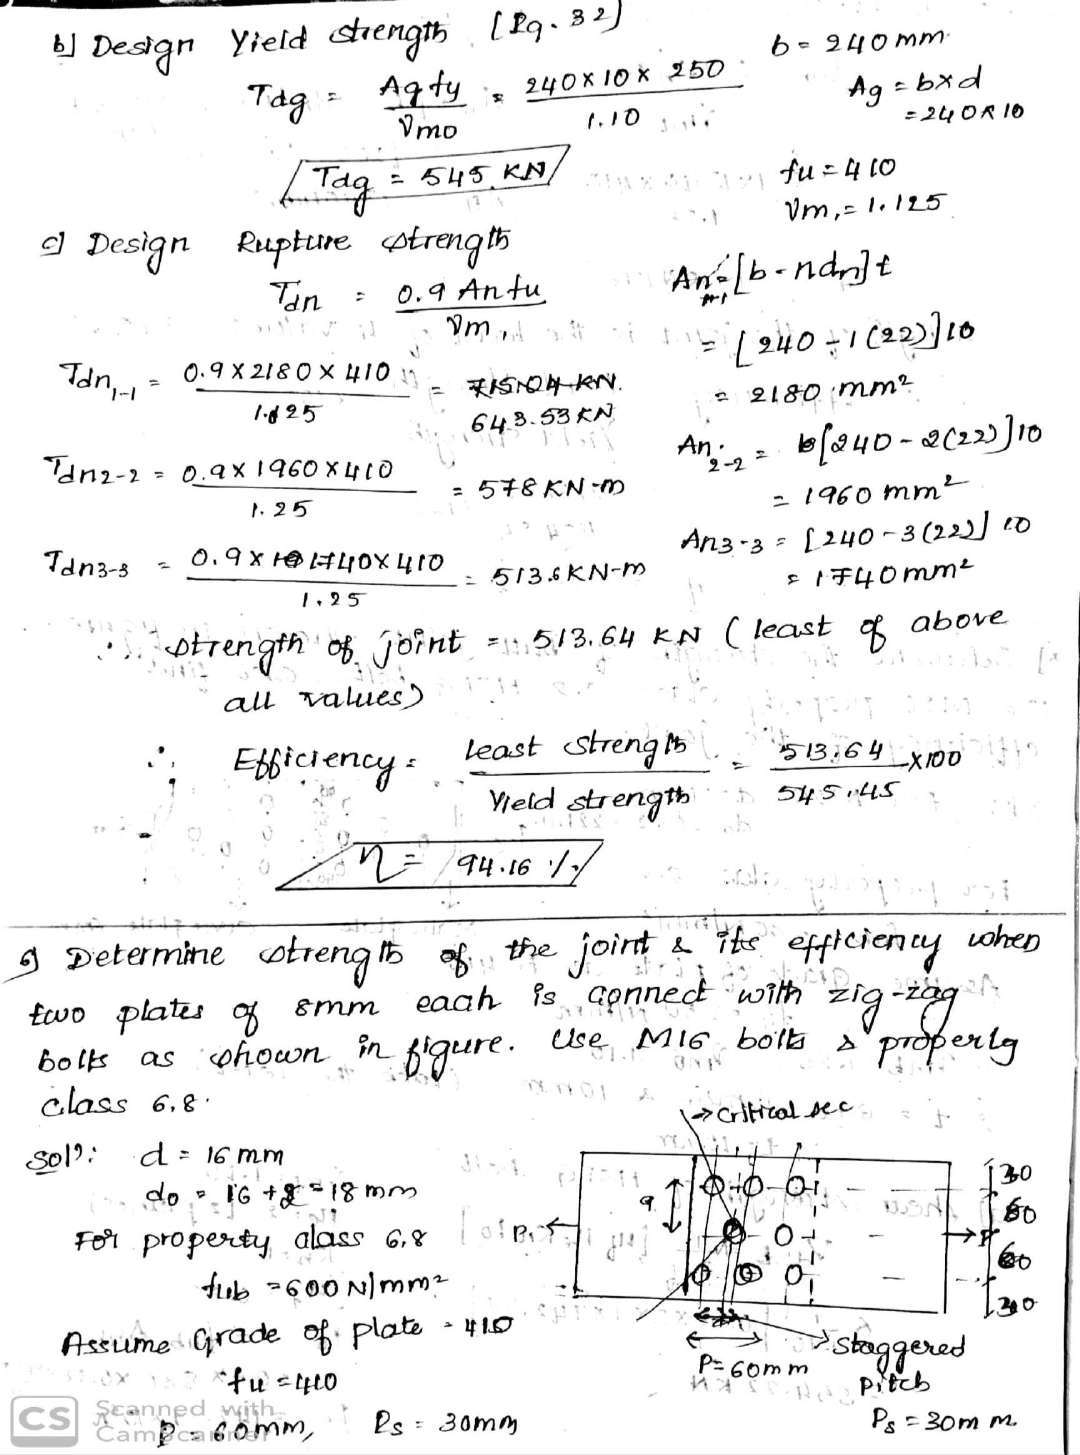 b] Design Yield strength [Pg. 32]
b = 240mm
Tdg = Ag fy / γmo = 240 x 10 x 250 / 1.10
Ag = bxd
= 240 x 10
Tdg = 545 KN
fu = 410
γm, = 1.125
c] Design Rupture strength
Tdn = 0.9 An fu / γm,
An = [b - ndn] t
1-1
= [240 - 1(22)]10
Tdn 1-1 = 0.9 x 2180 x 410 / 1.25 = 715.04 KN.
643.53 KN
= 2180 mm²
An 2-2 = [240 - 2(22)]10
Tdn2-2 = 0.9 x 1960 x 410 / 1.25 = 578 KN-m
= 1960 mm²
An3-3 = [240 - 3(22)] 10
Tdn3-3 = 0.9 x 1740 x 410 / 1.25 = 513.6 KN-m
= 1740mm²
∴ strength of joint = 513.64 KN ( least of above
all values)
∴ Efficiency = least strength / Yield strength = 513.64 / 545.45 x100
η = 94.16 %
6) Determine strength of the joint & its efficiency when
two plates of 8mm each is connect with zig-zag
bolts as shown in figure. Use M16 bolts & property
class 6.8.
→ critical sec
Sol?: d = 16 mm
do = 16 + 2 = 18 mm
For property class 6.8
fub = 600 N/mm²
Assume Grade of plate - 410
fu = 410
P = 60mm, Ps = 30mm
g
P
P
30
60
60
30
P = 60mm
Staggered
pitch
Ps = 30m m.
CS Scanned with
CamScanner